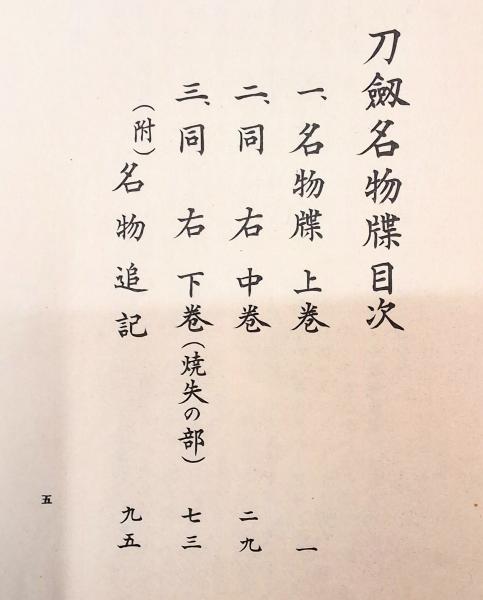 刀劔名物牒目次
一、名物牒 上巻 一
二、同 右 中巻 二九
三、同 右 下巻(焼失の部) 七三
(附)名物追記 九五
五